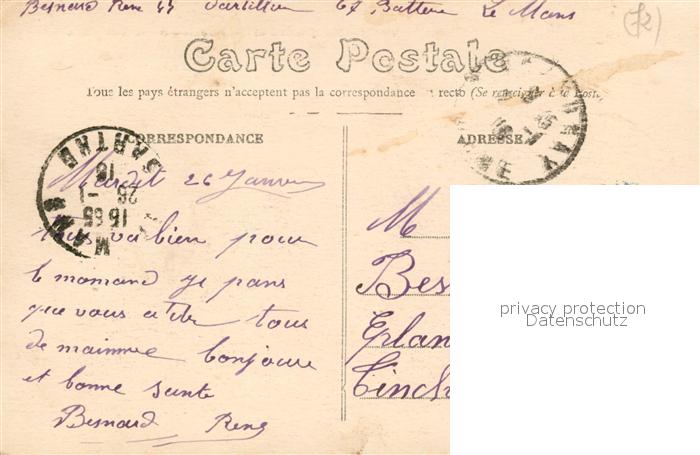 Besnard Rene 44 67 Batterie Le Mans
Carte Postale
Tous les pays étrangers n'acceptent pas la correspondance recto (Se renseigner à la Poste)
CORRESPONDANCE
ADRESSE
MANS SARTHE
15 55
26 -1
16
Mardit 26 Janvier
tous va bien pour
le momand je pans
que vous ete tous
de mainme bonjoure
et bonne sante
Besnard Rene
M
Bes
Eplan
Tinch
privacy protection
Datenschutz